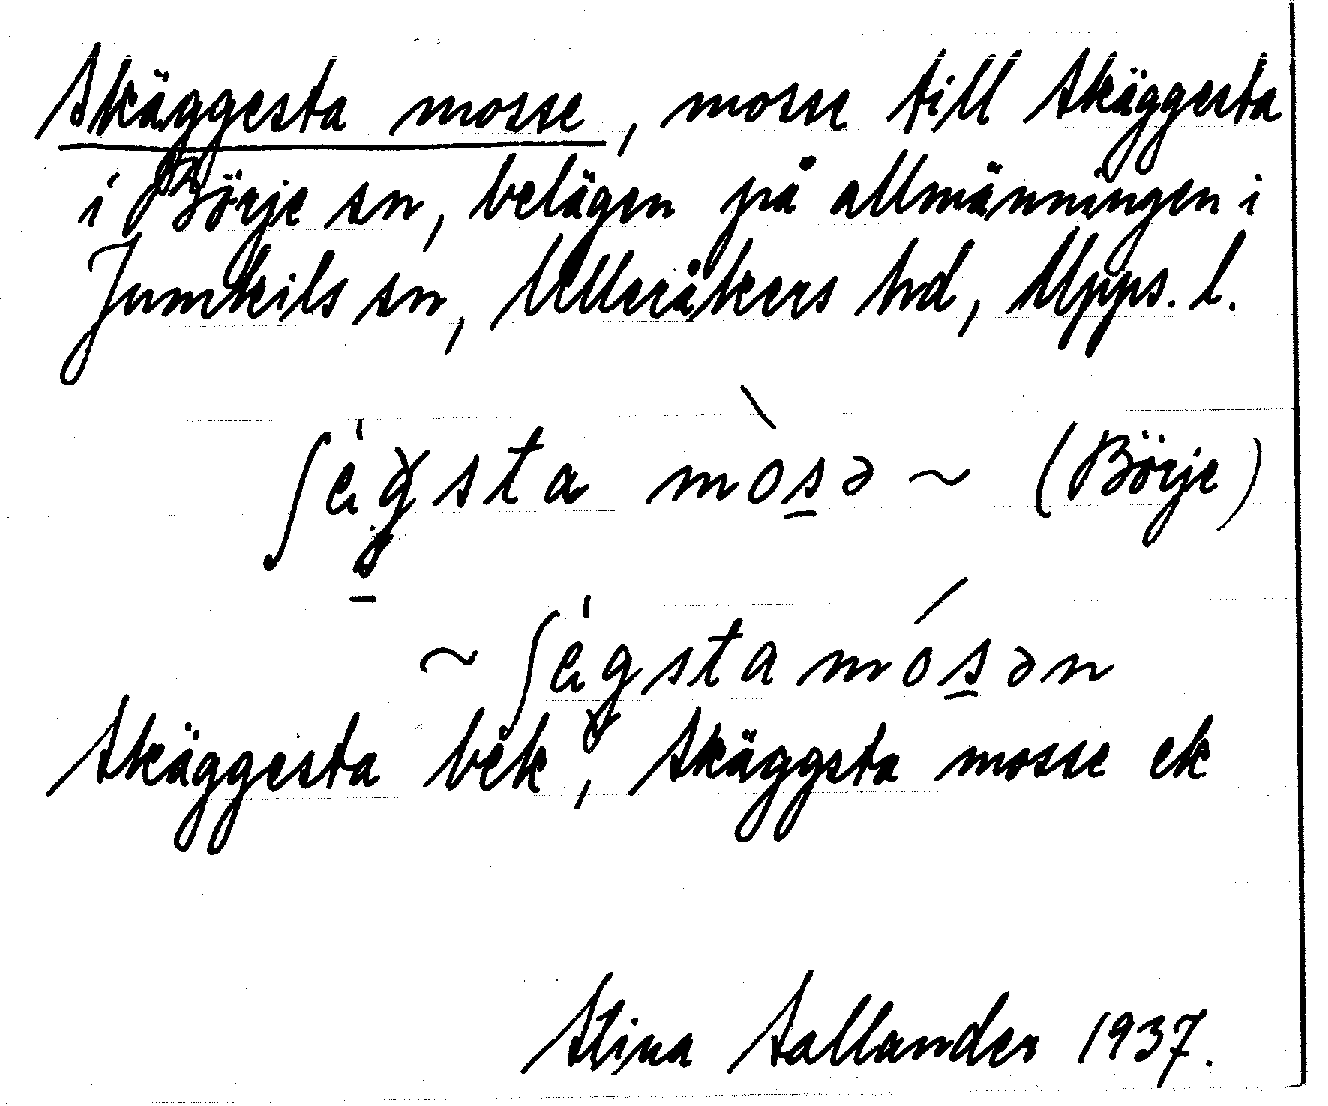 Skäggesta mosse, mosse till Skäggesta
i Börje sn, belägen på allmänningen i
Jumkils sn, Ulleråkers hd, Upps. l.
mòsə ~ (Börje)
~
Skäggesta bek, Skäggsta mosse ek
Stina Sallander 1937.